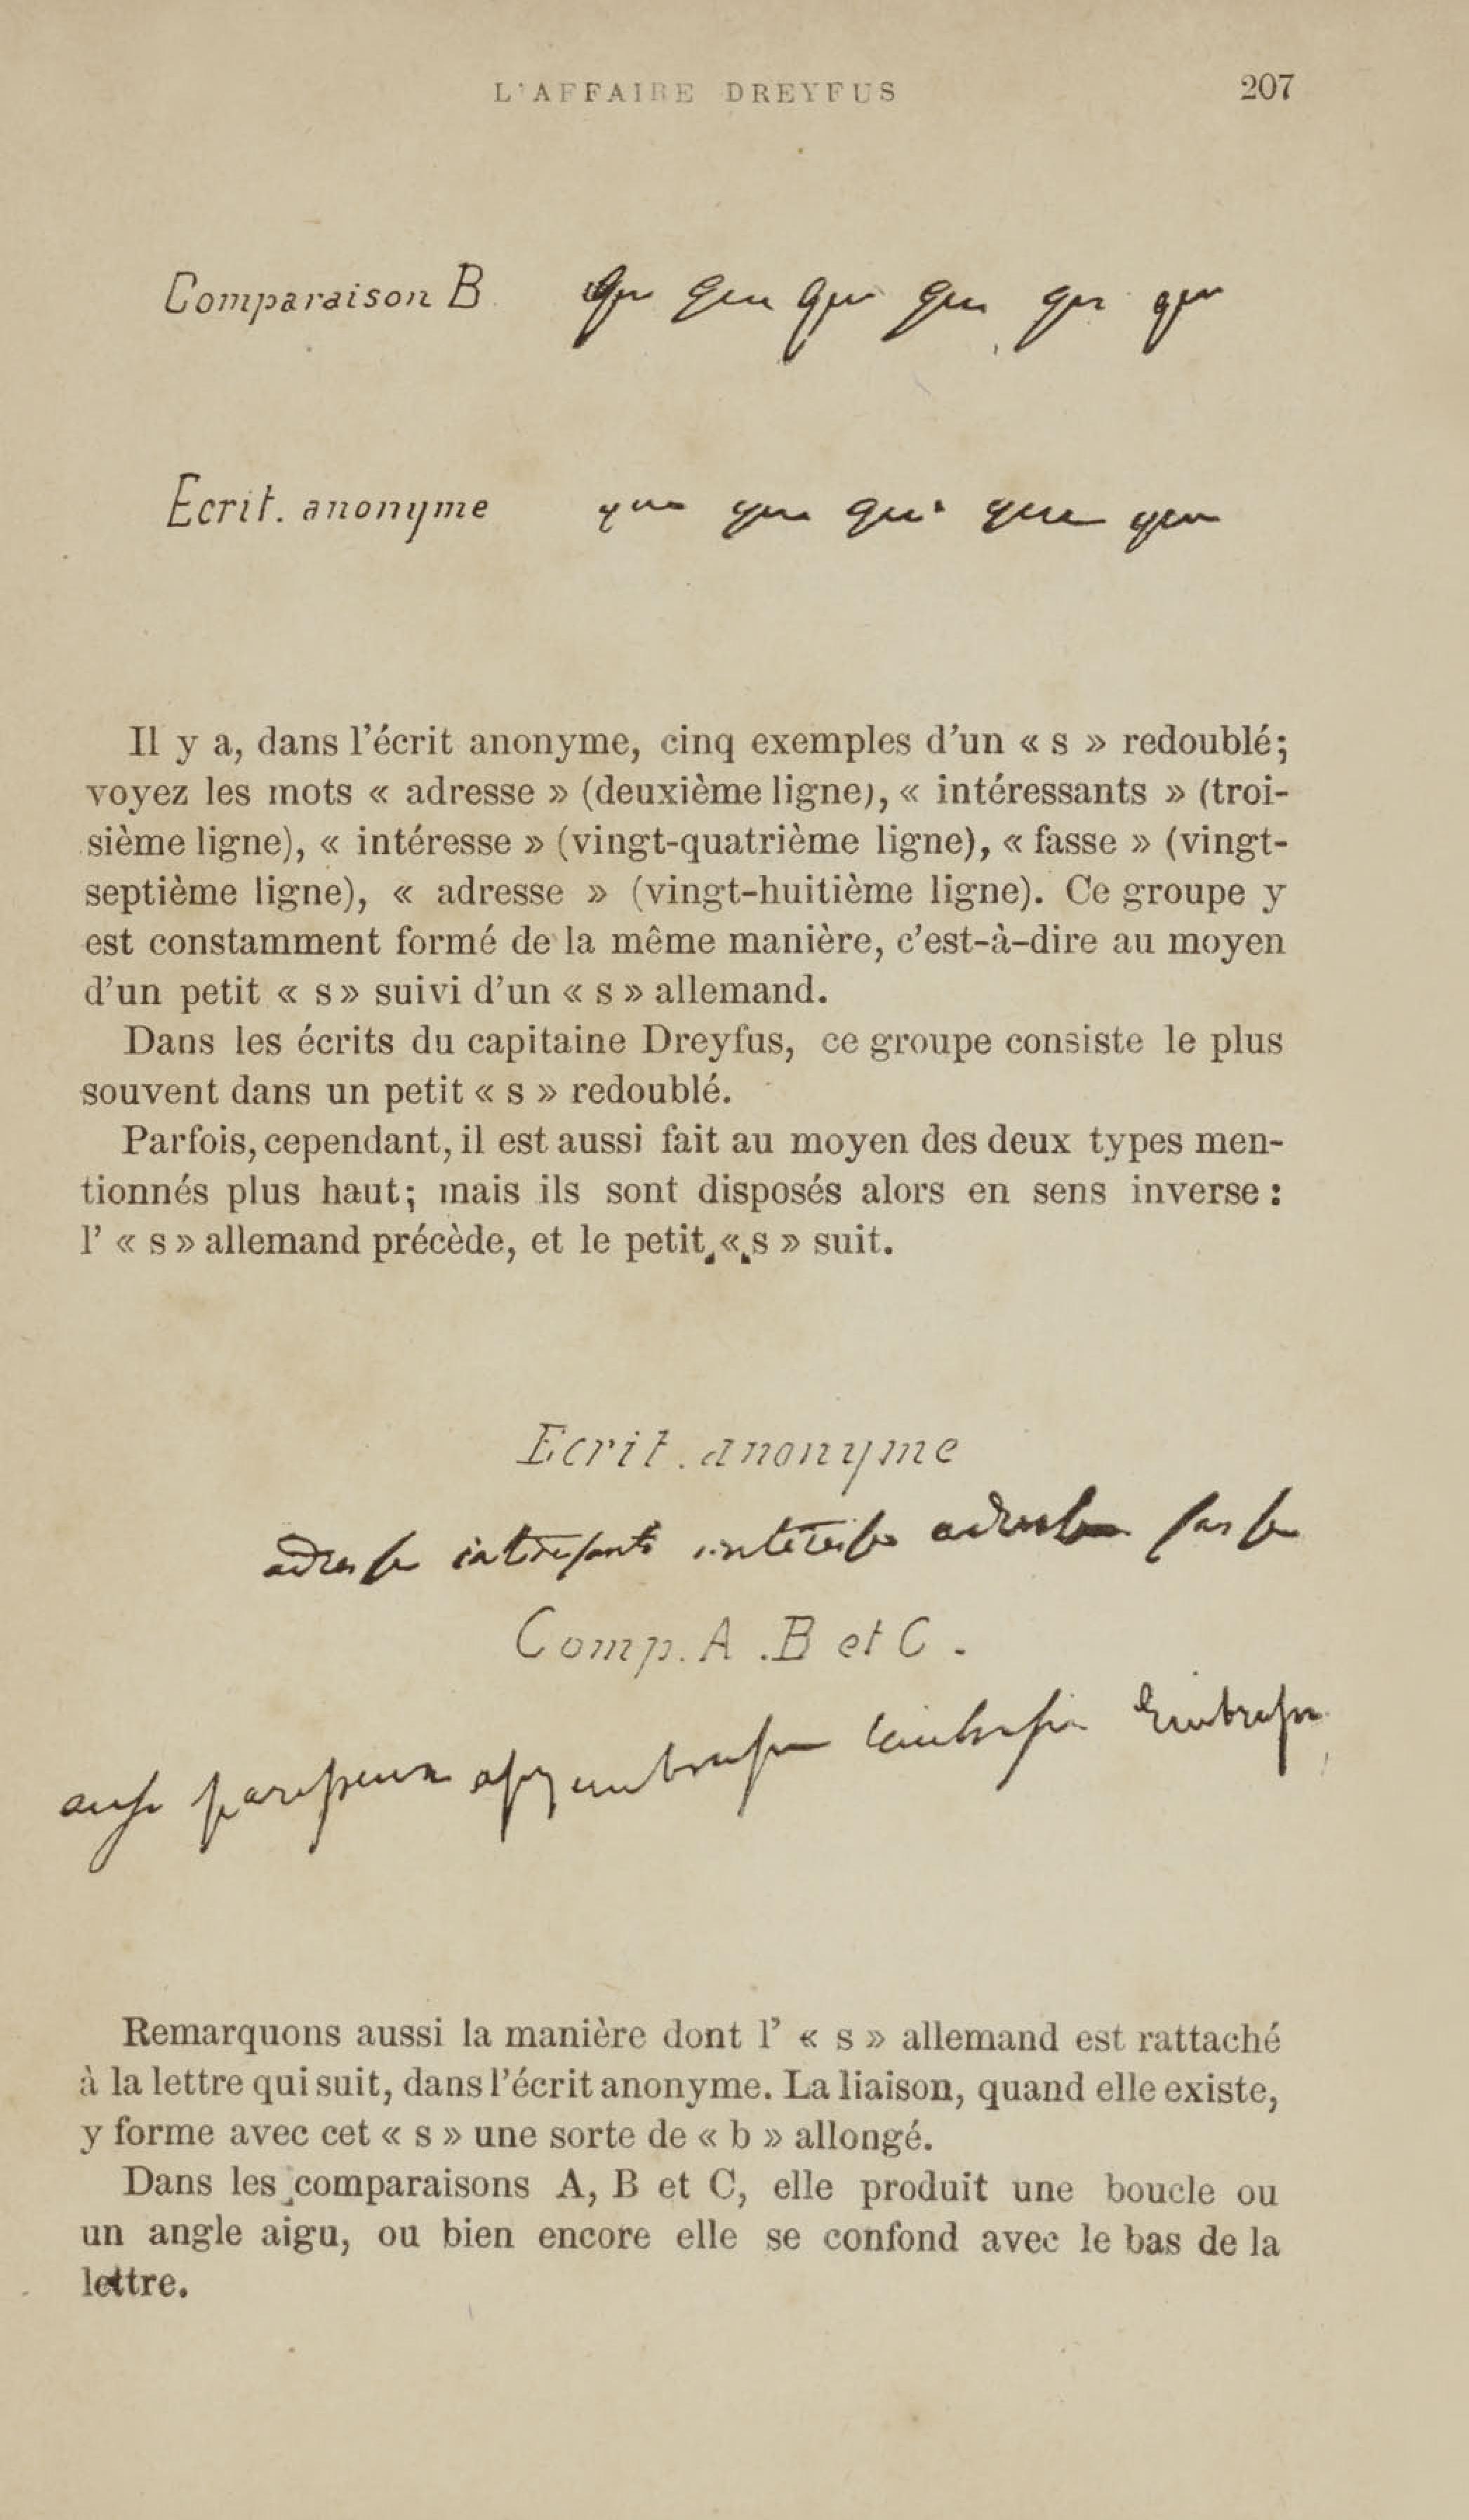 L'AFFAIRE DREYFUS 207
Comparaison B que que que que qui que
Ecrit. anonyme que que qui que que
Il y a, dans l'écrit anonyme, cinq exemples d'un « s » redoublé;
voyez les mots « adresse » (deuxième ligne), « intéressants » (troi-
sième ligne), « intéresse » (vingt-quatrième ligne), « fasse » (vingt-
septième ligne), « adresse » (vingt-huitième ligne). Ce groupe y
est constamment formé de la même manière, c'est-à-dire au moyen
d'un petit « s » suivi d'un « s » allemand.
Dans les écrits du capitaine Dreyfus, ce groupe consiste le plus
souvent dans un petit « s » redoublé.
Parfois, cependant, il est aussi fait au moyen des deux types men-
tionnés plus haut; mais ils sont disposés alors en sens inverse :
l' « s » allemand précède, et le petit « s » suit.
Ecrit. anonyme
adresse intéressants intéresse adresse fasse
Comp. A. B et C.
aussi paresseux assez embrasse embrasse Embrasse
Remarquons aussi la manière dont l' « s » allemand est rattaché
à la lettre qui suit, dans l'écrit anonyme. La liaison, quand elle existe,
y forme avec cet « s » une sorte de « b » allongé.
Dans les comparaisons A, B et C, elle produit une boucle ou
un angle aigu, ou bien encore elle se confond avec le bas de la
lettre.